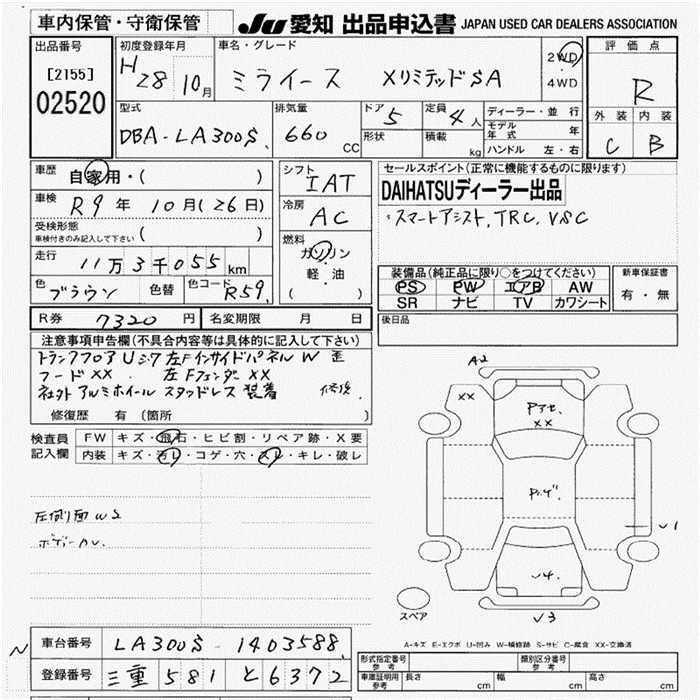 車内保管・守衛保管
JU 愛知 出品申込書 JAPAN USED CAR DEALERS ASSOCIATION
出品番号
[2155]
02520
初度登録年月
H28 10月
車名・グレード
ミライース XリミテッドSA
2WD
・
4WD
評価点
R
外装 内装
C B
型式
DBA-LA300S
排気量
660 CC
ドア 5
形状
定員 4人
積載 kg
ディーラー・並行
モデル年式 年
ハンドル 左・右
車歴 自家用・( )
車検 R9年 10月(26日)
受検形態
車検付きのみ記入して下さい ( )
走行 11万3千055km
色 ブラウン 色替 色コード R59
シフト IAT
冷房 AC
燃料
ガソリン
・
軽・油
( )
セールスポイント(正常に機能するものに限ります)
DAIHATSUディーラー出品
・スマートアシスト,TRC,VSC
装備品(純正品に限り○をつけてください)
PS PW エアB AW
SR ナビ TV カワシート
新車保証書
有・無
R券 7320円 名変期限 月 日
後日品
注意事項申告欄(不具合内容等は具体的に記入して下さい)
トランクフロアUシワ 左FインサイドパネルW 歪
フードXX 左FフェンダーXX
社外アルミホイール スタッドレス装着 修復
修復歴 有(箇所 )
検査員記入欄
FW キズ・飛石・ヒビ割・リペア跡・X要
内装 キズ・汚レ・コゲ・穴・スレ・キレ・破レ
左側面W2
A2
XX
XX
V4
V1
V3
スペア
A-キズ E-エクボ U-凹み W-補修跡 S-サビ C-腐食 XX-交換済
車台番号 LA300S-1403588
登録番号 三重 581 と 6372
形式指定番号 参考
類別区分番号 参考
車庫証明用 参考 長さ cm 幅 cm 高さ cm